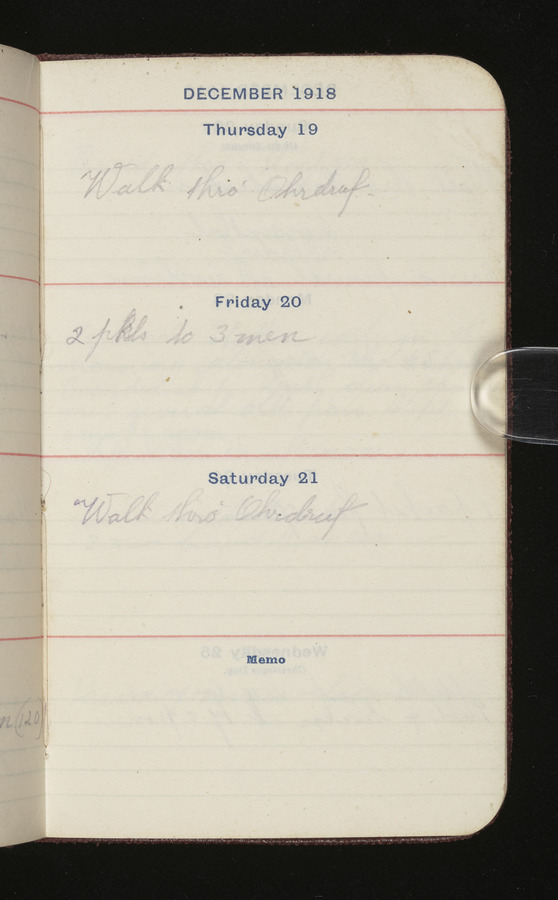 DECEMBER 1918
Thursday 19
Walk thro' Ohrdruf.
Friday 20
2 pkts to 3 men
Saturday 21
Walk thro' Ohrdruf
Memo
(120)